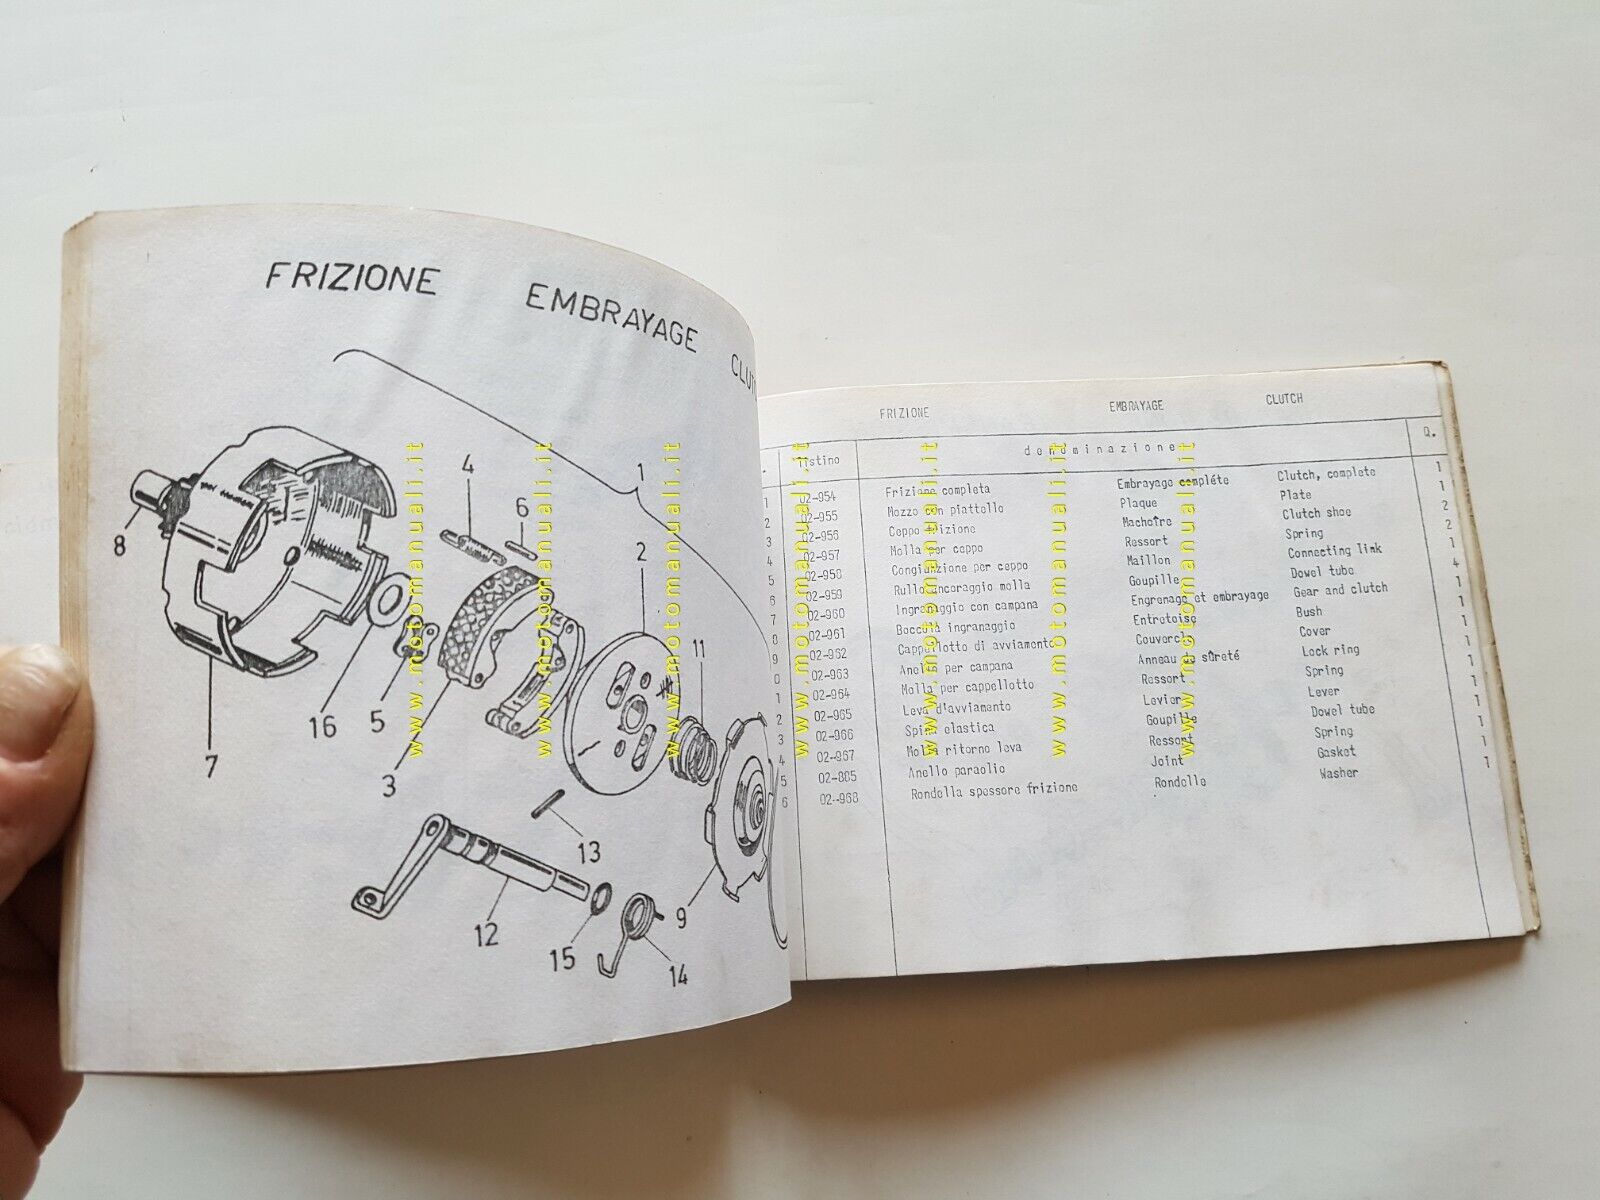 FRIZIONE EMBRAYAGE
1
4
6
2
8
11
16
5
7
3
13
9
12
15
14
FRIZIONE EMBRAYAGE CLUTCH
listino denominazione Q.
1 02-954 Frizione completa Embrayage compléte Clutch, complete 1
2 02-955 Mozzo con piattello Plaque Plate 1
3 02-956 Ceppo frizione Machoire Clutch shoe 2
02-957 Molla per ceppo Ressort Spring 2
5 02-958 Congiunzione per ceppo Maillon Connecting link 1
6 02-959 Rullo ancoraggio molla Goupille Dowel tube 4
7 02-960 Ingranaggio con campana Engrenage et embrayage Gear and clutch 1
8 02-961 Boccola ingranaggio Entretoise Bush 1
9 02-962 Cappellotto di avviamento Couvercle Cover 1
0 02-963 Anello per campana Anneau de sûreté Lock ring 1
1 02-964 Molla per cappellotto Ressort Spring 1
2 02-965 Leva d'avviamento Levier Lever 1
3 02-966 Spina elastica Goupille Dowel tube 1
4 02-967 Molla ritorno leva Ressort Spring 1
5 02-805 Anello paraolio Joint Gasket 1
6 02-968 Rondella spessore frizione Rondelle Washer 1
www.motomanuali.it
www.motomanuali.it
www.motomanuali.it
www.motomanuali.it
www.motomanuali.it
www.motomanuali.it
www.motomanuali.it